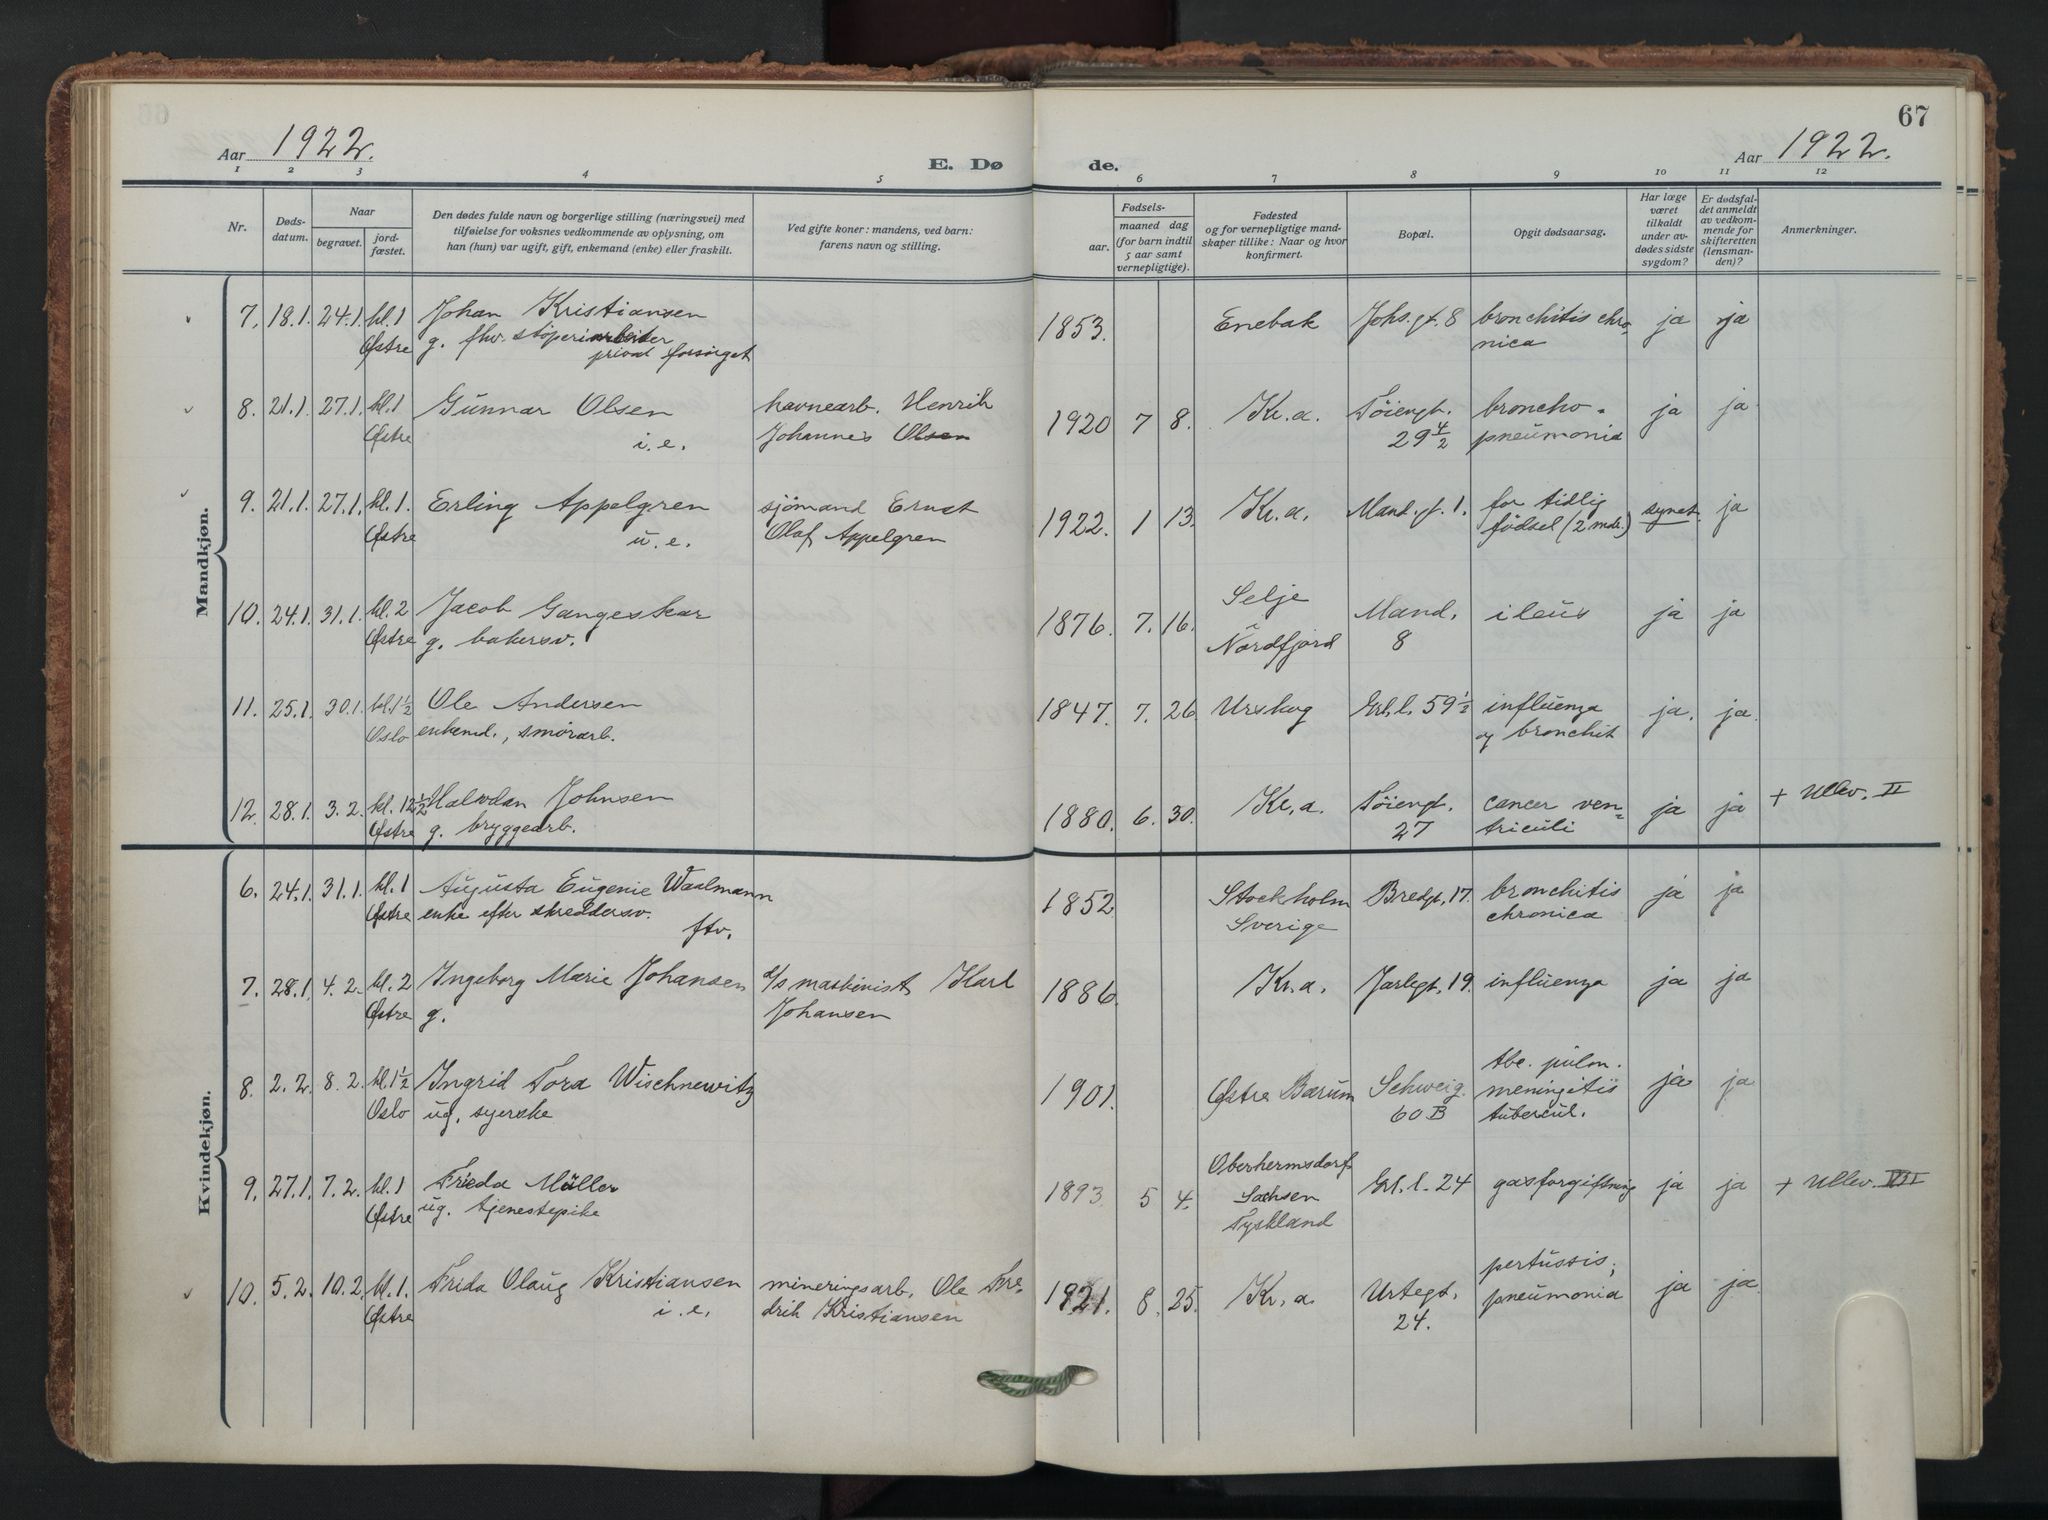 67
Aar 1922.
E. Dø de.
Aar 1922.
1 2 3 4 5 6 7 8 9 10 11 12
Nr.
Døds-
datum.
Naar
begravet.
jord-
fæstet.
Den dødes fulde navn og borgerlige stilling (næringsvei) med
tilføielse for voksnes vedkommende av oplysning, om
han (hun) var ugift, gift, enkemand (enke) eller fraskilt.
Ved gifte koner: mandens, ved barn:
farens navn og stilling.
Fødsels-
aar.
maaned dag
(for barn indtil
5 aar samt
vernepligtige).
Fødested
og for vernepligtige mand-
skaper tillike: Naar og hvor
konfirmert.
Bopæl.
Opgit dødsaarsag.
Har læge
været
tilkaldt
under av-
dødes sidste
sygdom?
Er dødsfal-
det anmeldt
av vedkom-
mende for
skifteretten
(lensman-
den)?
Anmerkninger.
Mandkjøn.
7. 18.1. 24.1. kl.1 Johan Kristiansen 1853. Enebak Johs.gt.8 bronchitis chro- ja ja
Østre g. fhv. støperiarbeider nica
privat forsørget
8. 21.1. 27.1. kl.1 Gunnar Olsen havnearb. Henrik 1920 7 8. Kr.a. Töiengt. broncho- ja ja
Østre i.e. Johannes Olsen 29 4/2 pneumonia
9. 21.1. 27.1. kl.1. Erling Appelgren sjömand Ernst 1922. 1 13. Kr.a. Mand.gt.1. for tidlig synet. ja
Østre u.e. Olaf Appelgren födsel (2 mdr.)
10. 24.1. 31.1. kl.2 Jacob Gangeskar 1876. 7. 16. Selje Mand. ileus ja ja
Østre g. bakersv. Nordfjord 8
11. 25.1. 30.1. kl.1½ Ole Andersen 1847. 7. 26. Urskog Grl.l. 59½ influenza ja. ja.
Oslo enkemd., smörarb. og bronchit
12. 28.1. 3.2. kl.12½ Halvdan Johnsen 1880. 6. 30. Kr.a. Töiengt. cancer ven- ja ja + Ullev. II
Østre g. bryggearb. 27 triculi
Kvindekjøn.
6. 24.1. 31.1. kl.1 Augusta Eugenie Waalmann 1852 Stockholm Bredgt.17. bronchitis ja ja
Østre enke efter skreddersv. Sverige chronica
ftv.
7. 28.1. 4.2. kl.2 Ingeborg Marie Johansen d/s maskinist Karl 1886. Kr.a. Jarlegt.19. influenza ja ja
Østre g. Johansen
8. 2.2. 8.2. kl.1½ Ingrid Tora Wischnewitz 1901. Østre Bærum Schweig. tbc. pulm. ja ja
Oslo ug. syerske 60B meningitis
tubercul.
9. 27.1. 7.2. kl.1 Frieda Müller 1893 5 4. Oberhermsdorf Grl.l. 24 gasforgiftning ja ja + Ullev. VII
Østre ug. tjenestepike Sachsen
Tyskland
10. 5.2. 10.2. kl.1. Frida Olaug Kristiansen mineringsarb. Ole Fre- 1921. 8. 25. Kr.a. Urtegt. pertussis, ja ja.
Østre i.e. drik Kristiansen 24. pneumonia